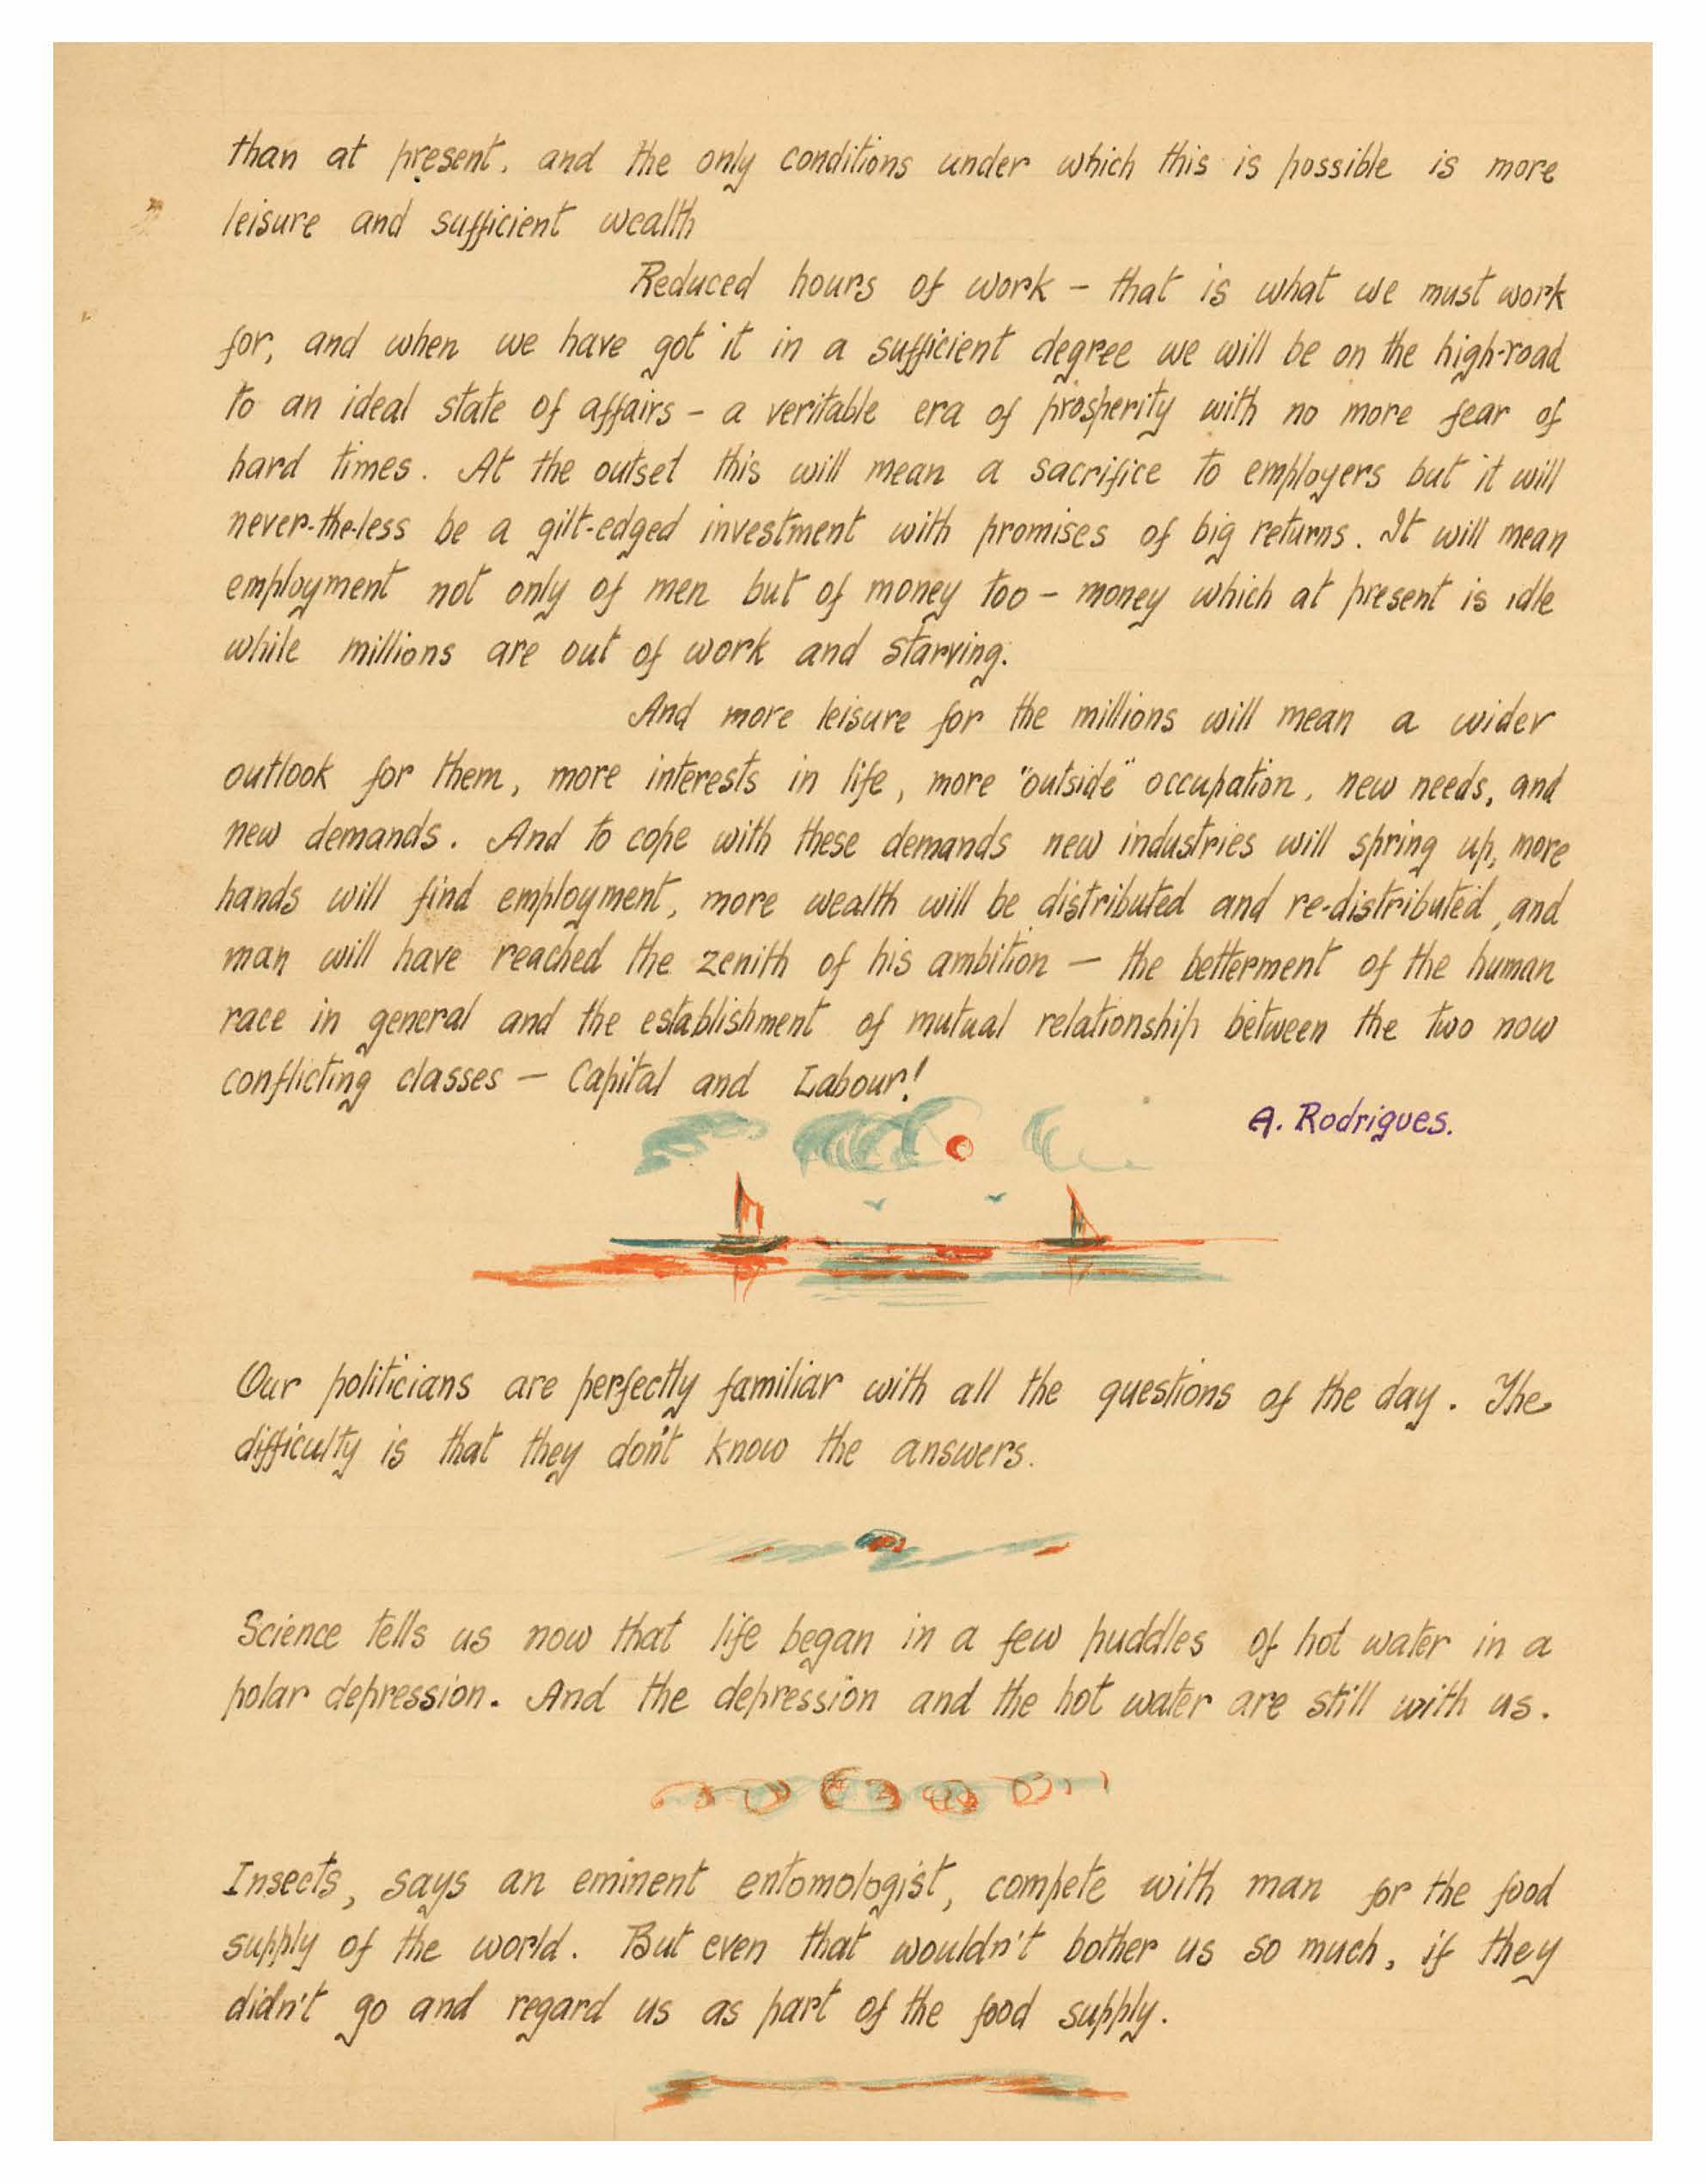 than at present, and the only conditions under which this is possible is more
leisure and sufficient wealth
Reduced hours of work – that is what we must work
for, and when we have got it in a sufficient degree we will be on the high-road
to an ideal state of affairs – a veritable era of prosperity with no more fear of
hard times. At the outset this will mean a sacrifice to employers but it will
never-the-less be a gilt-edged investment with promises of big returns. It will mean
employment not only of men but of money too – money which at present is idle
while millions are out of work and starving.
And more leisure for the millions will mean a wider
outlook for them, more interests in life, more "outside" occupation, new needs, and
new demands. And to cope with these demands new industries will spring up, more
hands will find employment, more wealth will be distributed and re-distributed, and
man will have reached the zenith of his ambition – the betterment of the human
race in general and the establishment of mutual relationship between the two now
conflicting classes – Capital and Labour!
A. Rodrigues.
Our politicians are perfectly familiar with all the questions of the day. The
difficulty is that they don't know the answers.
Science tells us now that life began in a few puddles of hot water in a
polar depression. And the depression and the hot water are still with us.
Insects, says an eminent entomologist, compete with man for the food
supply of the world. But even that wouldn't bother us so much, if they
didn't go and regard us as part of the food supply.